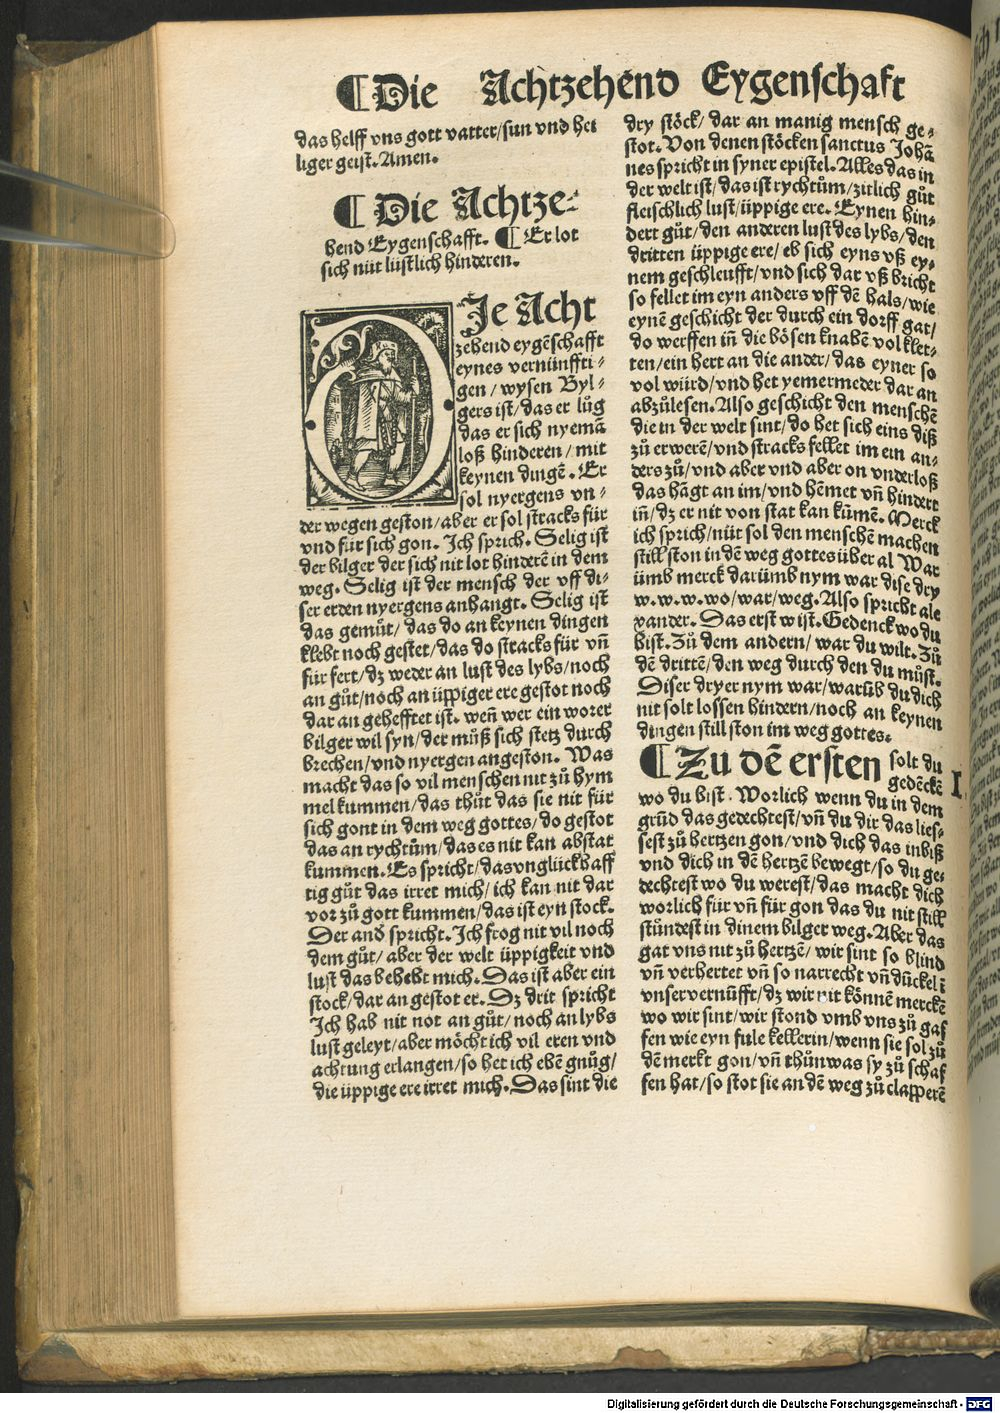 ¶Die Achtzehend Eygenschaft
das helff vns gott vatter/sun vnd hei
liger geist. Amen.
¶ Die Achtze⸗
hend Eygenschafft. ¶ Er lot
sich nüt lüstlich hinderen.
DJe Acht
zehend eygēschafft
eynes vernünffti⸗
gen/wysen Byl⸗
gers ist/das er lůg
das er sich nyemā
loß hinderen/mit
keynen dingē. Er
sol nyergens vn⸗
der wegen geston/aber er sol stracks für
vnd für sich gon. Ich sprich. Selig ist
der bilger der sich nit lot hinderē in dem
weg. Selig ist der mensch der vff di⸗
ser erden nyergens anhangt. Selig ist
das gemůt/das do an keynen dingen
klebt noch gestet/das do stracks für vñ
für fert/dz weder an lust des lybs/noch
an gůt/noch an üppiger ere gestot noch
dar an gehefftet ist. weñ wer ein worer
bilger wil syn/der můß sich stetz durch
brechen/vnd nyergen angeston. Was
macht das so vil menschen nit zů hym
mel kummen/das thůt das sie nit für
sich gont in dem weg gottes/do gestot
das an rychtům/das es nit kan abstat
kummen. Es spricht/das vnglückhaff
tig gůt das irret mich/ich kan nit dar
vor zů gott kummen/das ist eyn stock.
Der and̄ spricht. Ich frog nit vil noch
dem gůt/aber der welt üppigkeit vnd
lust das behebt mich. Das ist aber ein
stock/dar an gestot er. Dz drit spricht
Ich hab nit not an gůt/noch an lybs
lust geleyt/aber möcht ich vil eren vnd
achtung erlangen/so het ich ebē gnůg/
die üppige ere irret mich. Das sint die
dry stöck/dar an manig mensch ge⸗
stot. Von denen stöcken sanctus Johā
nes spricht in syner epistel. Alles das in
der welt ist/das ist rychtům/zitlich gůt
fleischlich lust/üppige ere. Eynen hin⸗
dert gůt/den anderen lust des lybs/den
dritten üppige ere/eb sich eyns vß ey⸗
nem geschleufft/vnd sich dar vß bricht
so fellet im eyn anders vff dē hals/wie
eynē geschicht der durch ein dorff gat/
do werffen iñ die bösen knabē vol klet⸗
ten/ein hert an die ander/das eyner so
vol würd/vnd het yemermeder dar an
abzůlesen. Also geschicht den menschē
die in der welt sint/do het sich eins diß
zů erwerē/vnd stracks fellet im ein an⸗
ders zů/vnd aber vnd aber on vnderloß
das hāgt an im/vnd hēmet vñ hindert
iñ/dz er nit von stat kan kūmē. Merck
ich sprich/nüt sol den menschē machen
still ston in dē weg gottes über al War
ümb merck darümb nym war dise dry
w.w.w. wo/war/weg. Also spricht ale
xander. Das erst w ist. Gedenck wo du
bist. Zů dem andern/war du wilt. Zů
dē drittē/den weg durch den du můst.
Diser dryer nym war/warūb du dich
nit solt lossen hindern/noch an keynen
dingen still ston im weg gottes.
¶Zu dē ersten solt du
gedēckē I.
wo du bist. Worlich wenn du in dem
grūd das gedechtest/vñ du dir das lies⸗
sest zů hertzen gon/vnd dich das inbiß
vnd dich in dē hertzē bewegt/so du ge⸗
dechtest wo du werest/das macht dich
worlich für vñ für gon das du nit still
stündest in dinem bilger weg. Aber das
gat vns nit zů hertzē/wir sint so blind
vñ verhertet vñ so narrecht vñ dückel ī
vnser vernüfft/dz wir nit könnē merckē
wo wir sint/wir stond vmb vns zů gaf
fen wie eyn fule kellerin/wenn sie sol zů
dē merkt gon/vñ thůn was sy zů schaf
fen hat/so stot sie an dē weg zů clapperē
Digitalisierung gefördert durch die Deutsche Forschungsgemeinschaft - DFG